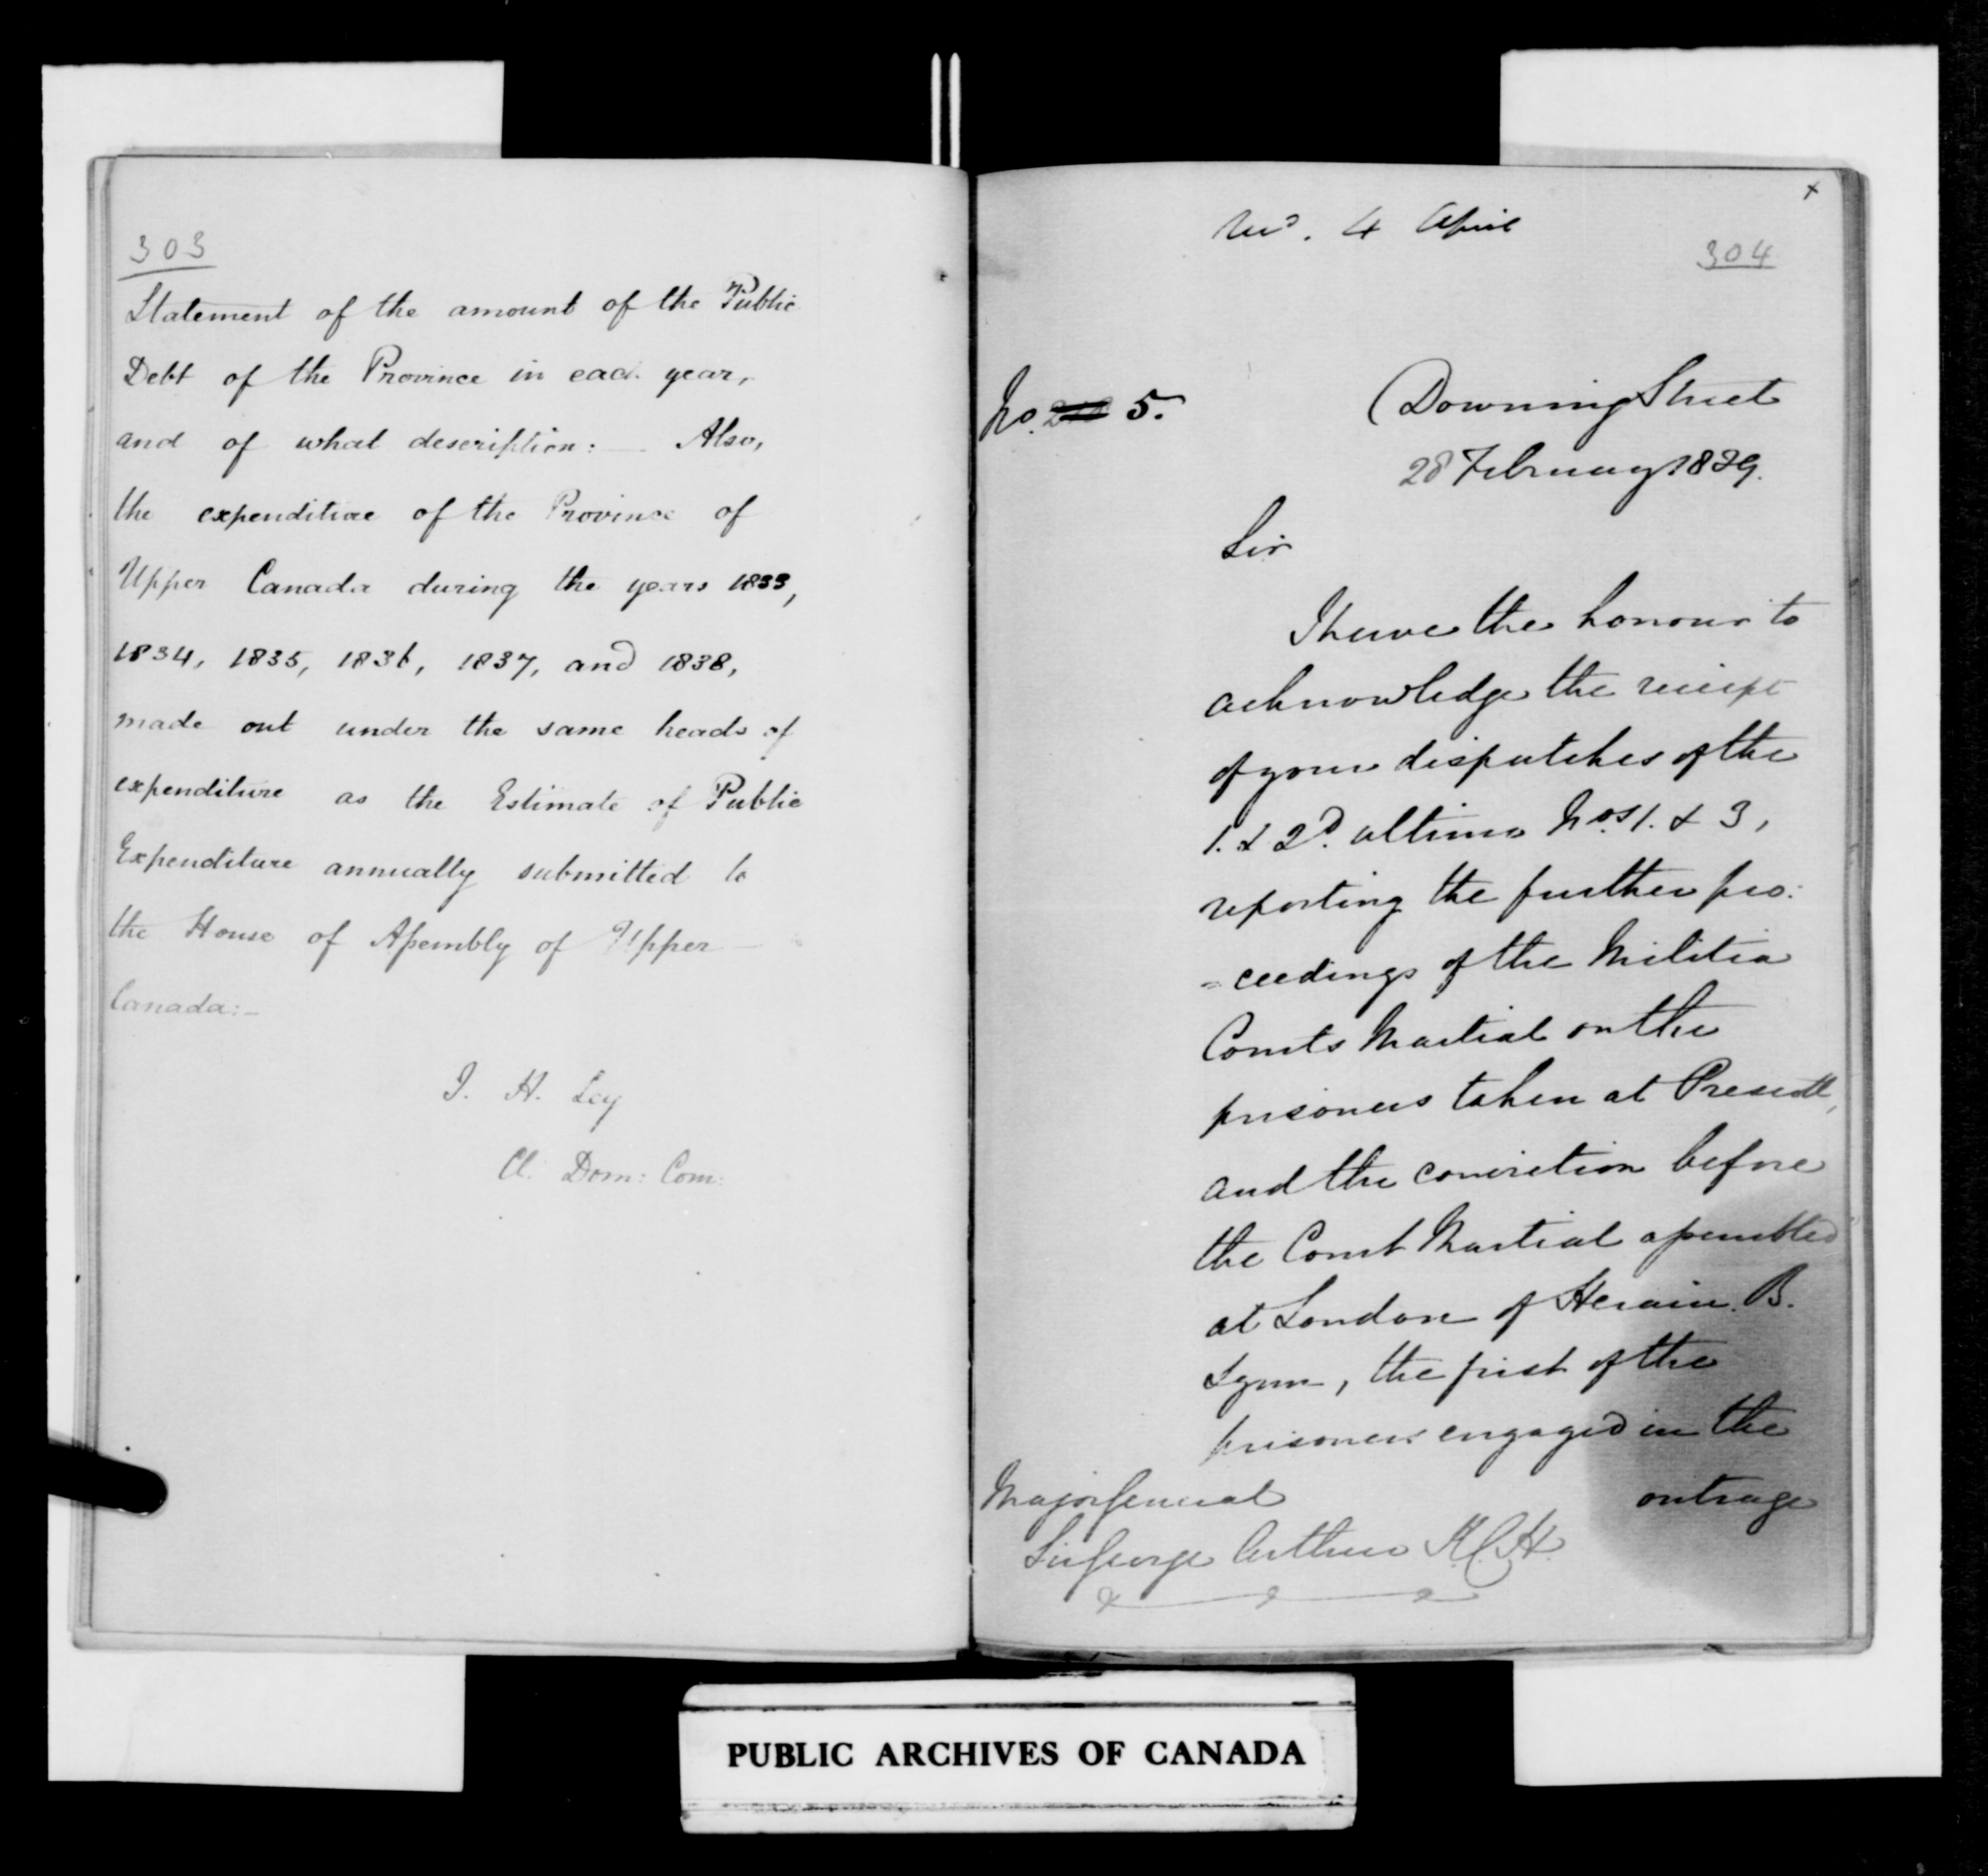 303
Statement of the amount of the Public
Debt of the Province in each year,
and of what description: — Also,
the expenditure of the Province of
Upper Canada during the years 1833,
1834, 1835, 1836, 1837, and 1838,
made out under the same heads of
expenditure as the Estimate of Public
Expenditure annually submitted to
the House of Assembly of Upper —
Canada:—
J. H. Ley
Cl. Dom: Com:
x
Recd. 4 April
304
No. 5.
Downing Street
28 February 1839.
Sir
I have the honour to
acknowledge the receipt
of your dispatches of the
1. & 2d. ultimo Nos 1. & 3,
reporting the further pro:
=ceedings of the Militia
Courts Martial on the
prisoners taken at Prescott,
and the conviction before
the Court Martial assembled
at London of B.
Lynn, the first of the
prisoners engaged in the
outrage
Major General
Sir George Arthur K.C.H.
PUBLIC ARCHIVES OF CANADA